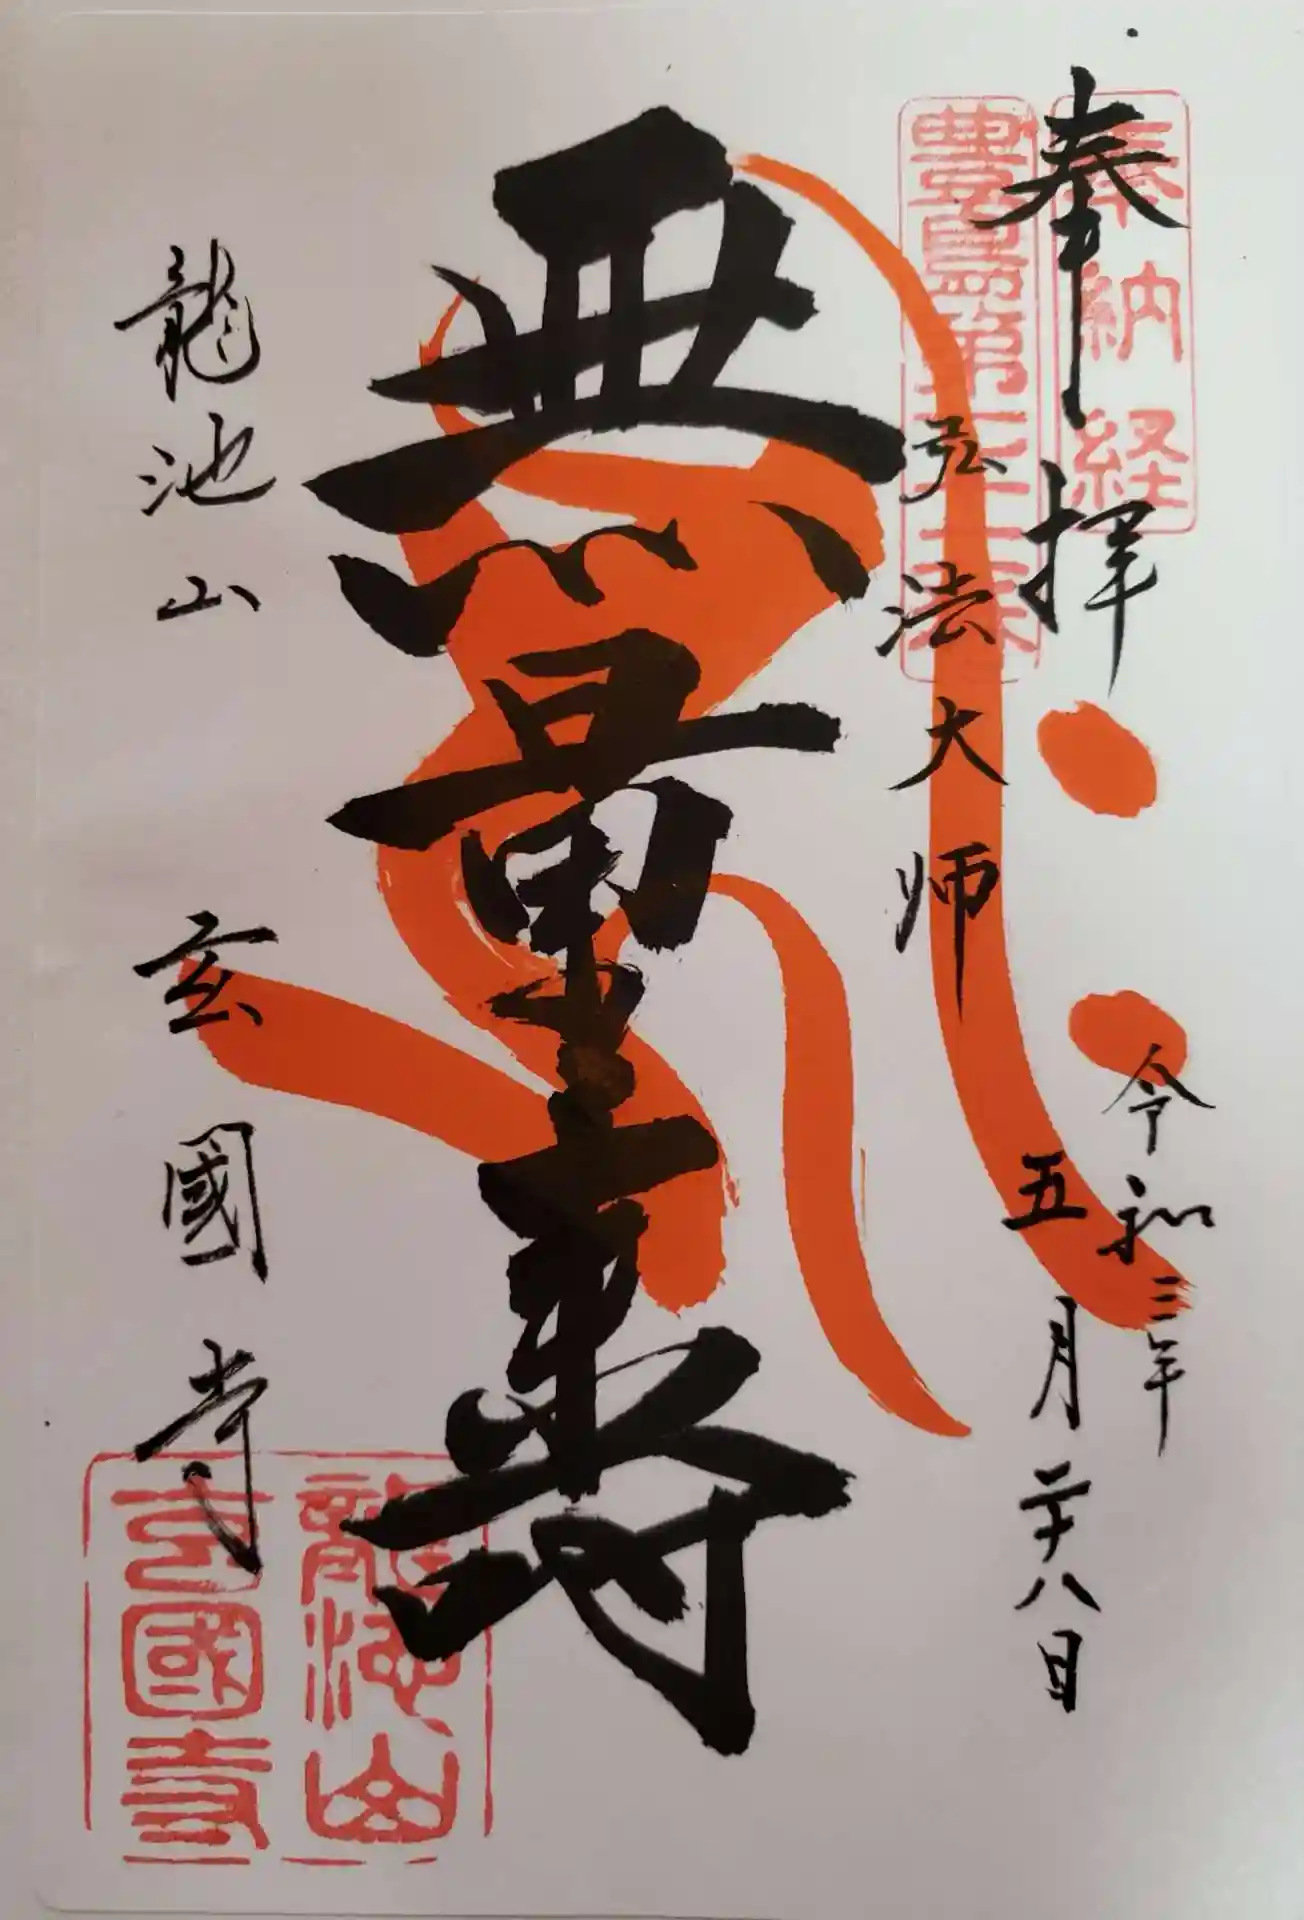 奉拝
奉納経
令和三年
五月二十八日
豊島第三十一番
弘法大师
無量寿
龍池山
玄國寺
龍池山
玄國寺